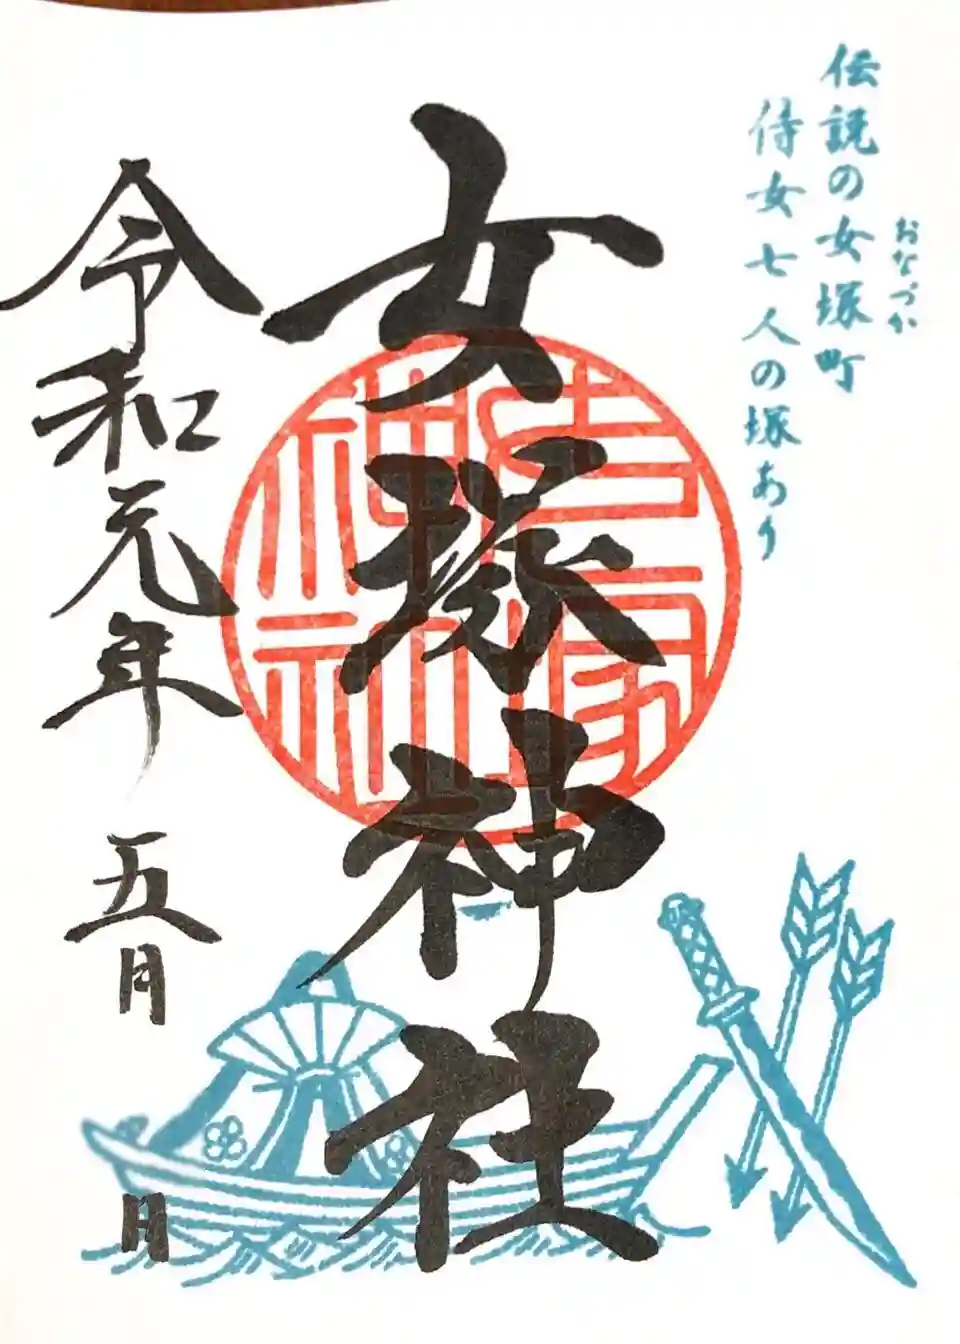 伝説の女塚町
おなづか
侍女七人の塚あり
女塚神社
令和元年 五月 月